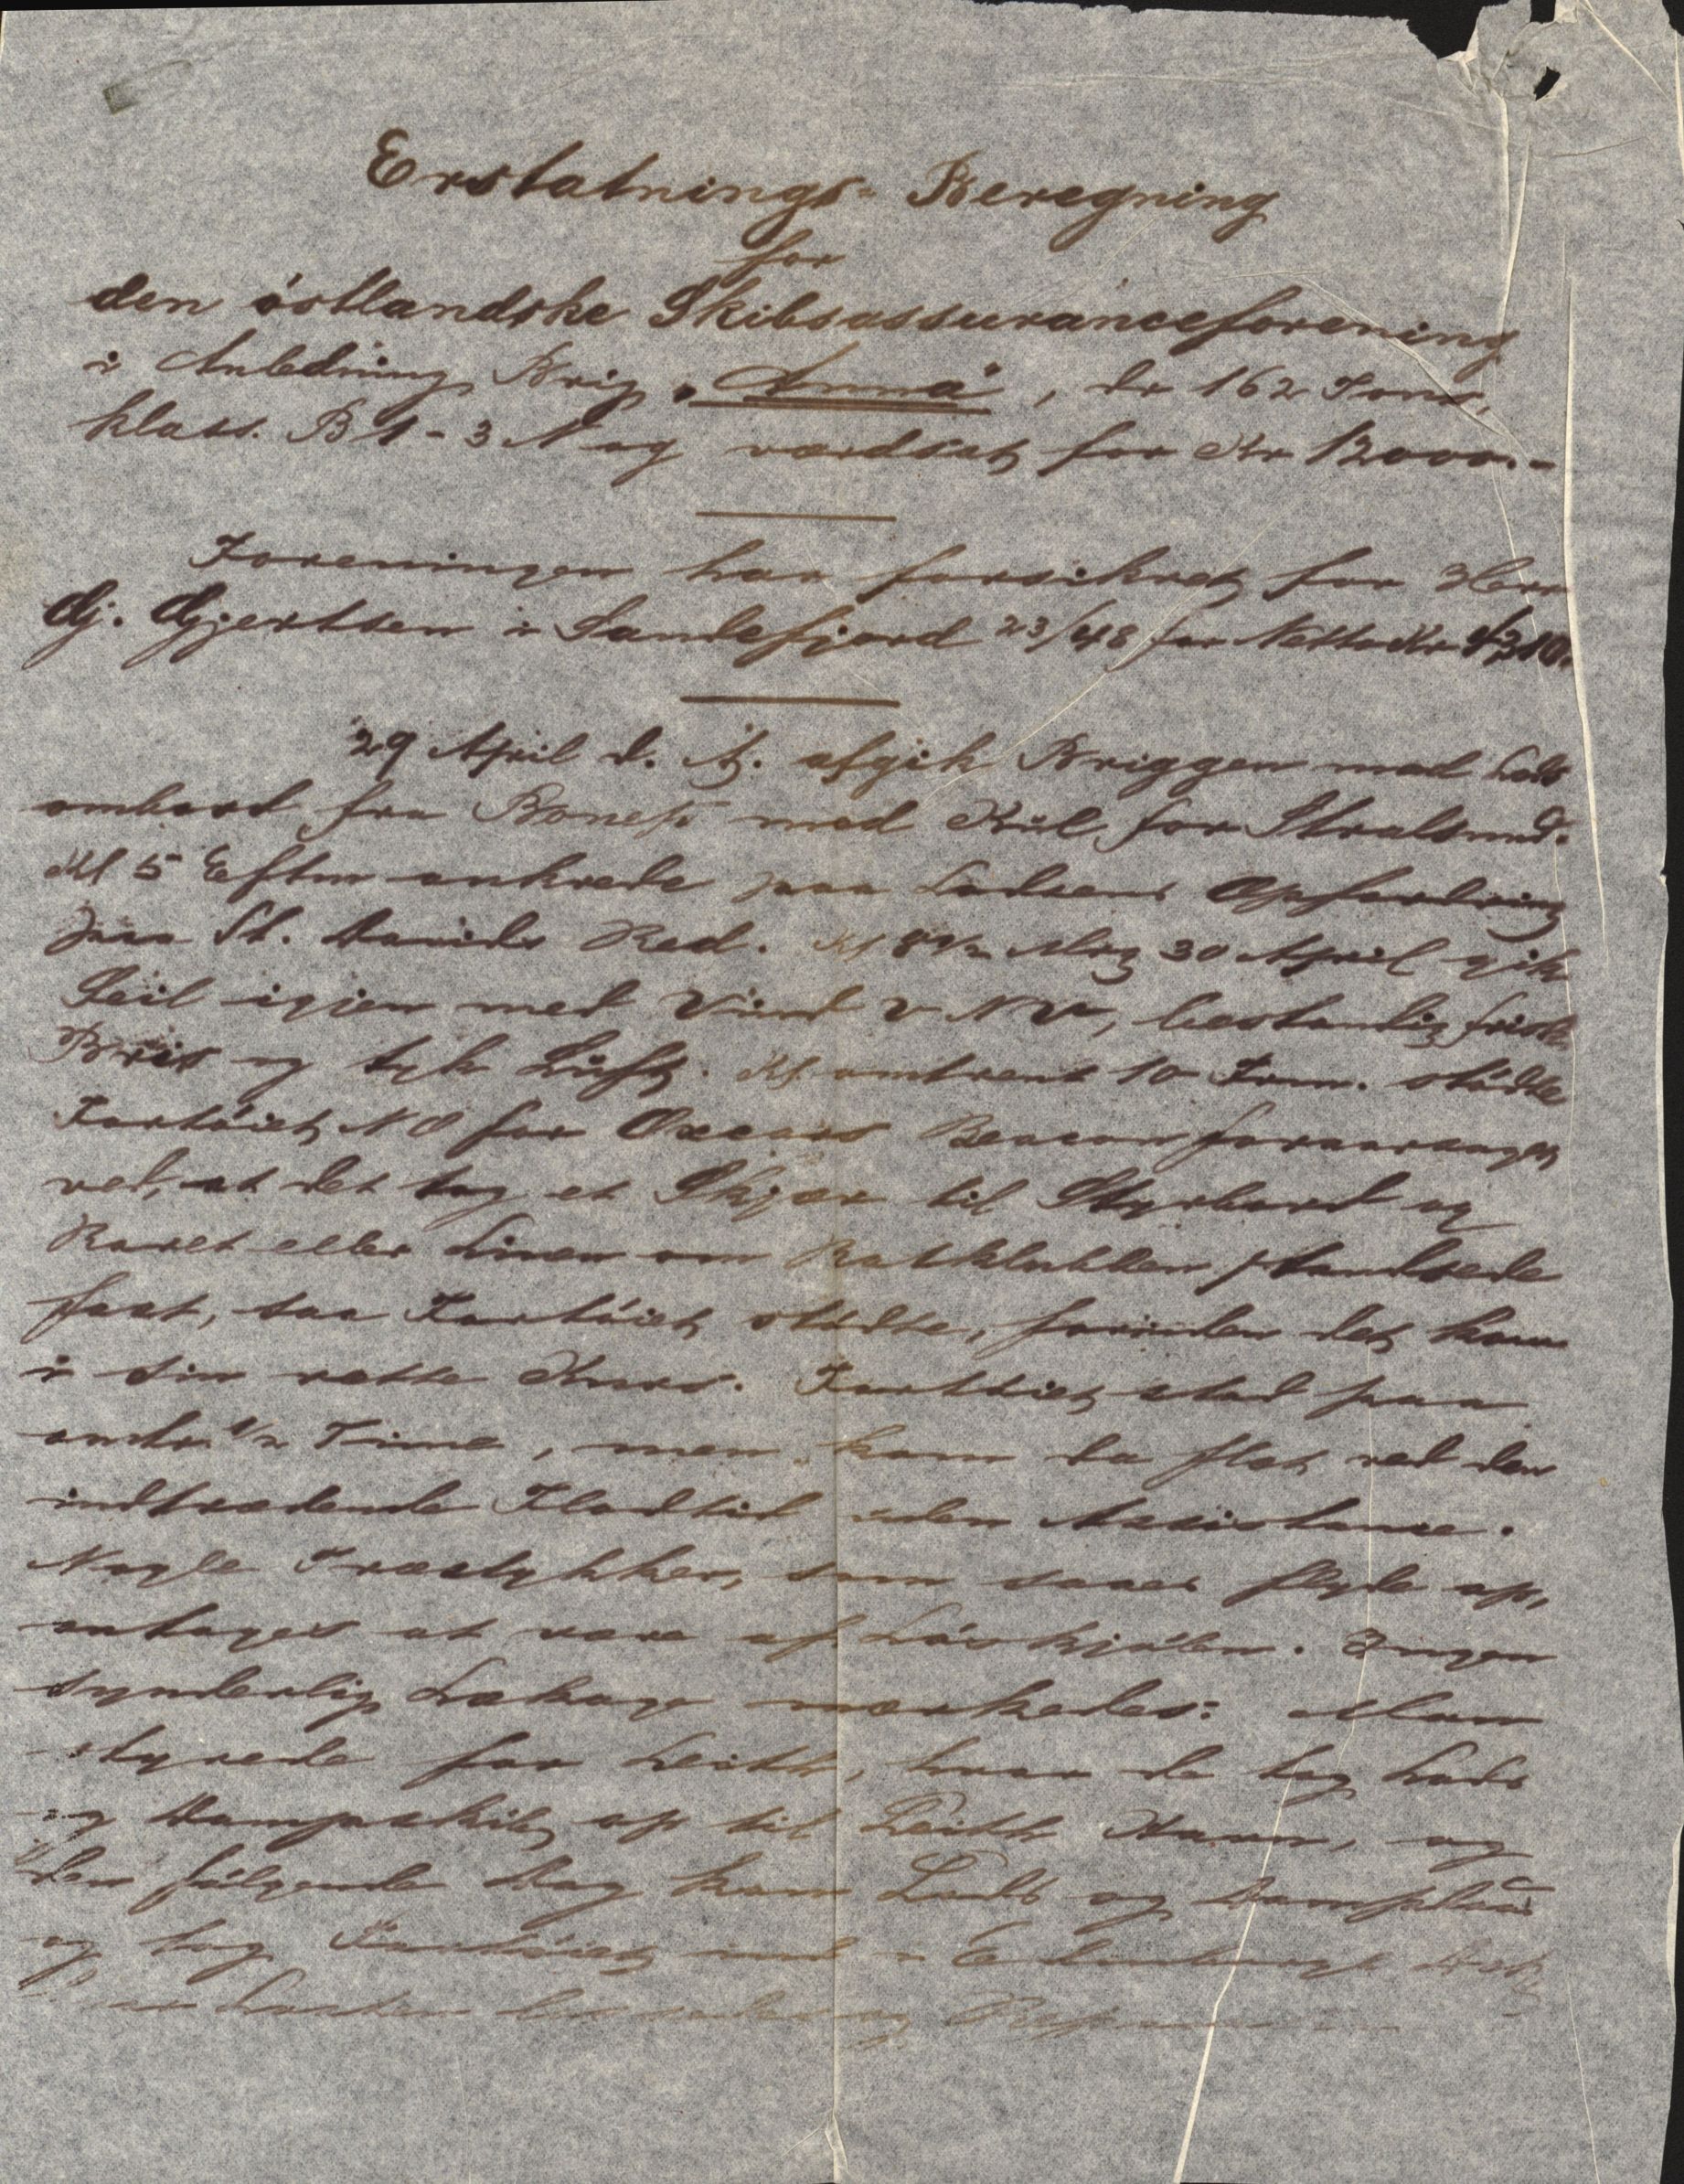 Erstatnings-Beregning
for
den østlandske Skibsassuranceforening
i Anledning Brig "Anna", dr 162 Tons,
klass. B 1-3 N og værdsat for Kr 12000.-
Foreningen har forsikret for Herr
Gj. Gjertsen i Sandefjord 23/48 for Netto Kr
29 April d. A. afgik Briggen med Lods
ombord fra Boness med Kul for Stralsund.
Kl 5 Eftm ankrede paa Lodsens Opfordring
paa St. Davids Red. Kl 8 1/2 Mrg 30 April gik
Seil igjen med Vind V N V, bestandig frisk
Bris og tyk Luft. Kl. omtrent 10 Form. stødte
Fartøiet NO for Oxcars Beacon foraarsaget
ved, at det tog et Skjær til Styrbord og
Roret eller Linen om Ratklubben standsede
fast, saa Fartøiet stødte, førinden det kom
i sin rette Kurs. Fartøiet stod paa
omtr. 1/2 Time, men kom da flot ved den
indtrædende Flodtid uden Assistance.
Nogle Træstykker, som saaes flyde op,
antages at være af Løskjølen. Ingen
synderlig Lækage mærkedes. Man
styrede for Leith, hvor de tog Lods
og Dampskib op til Leith Havn, og
den følgende Dag kom Lods og
og tog Fartøiet ind i Edinburgh Dok,
Lasten